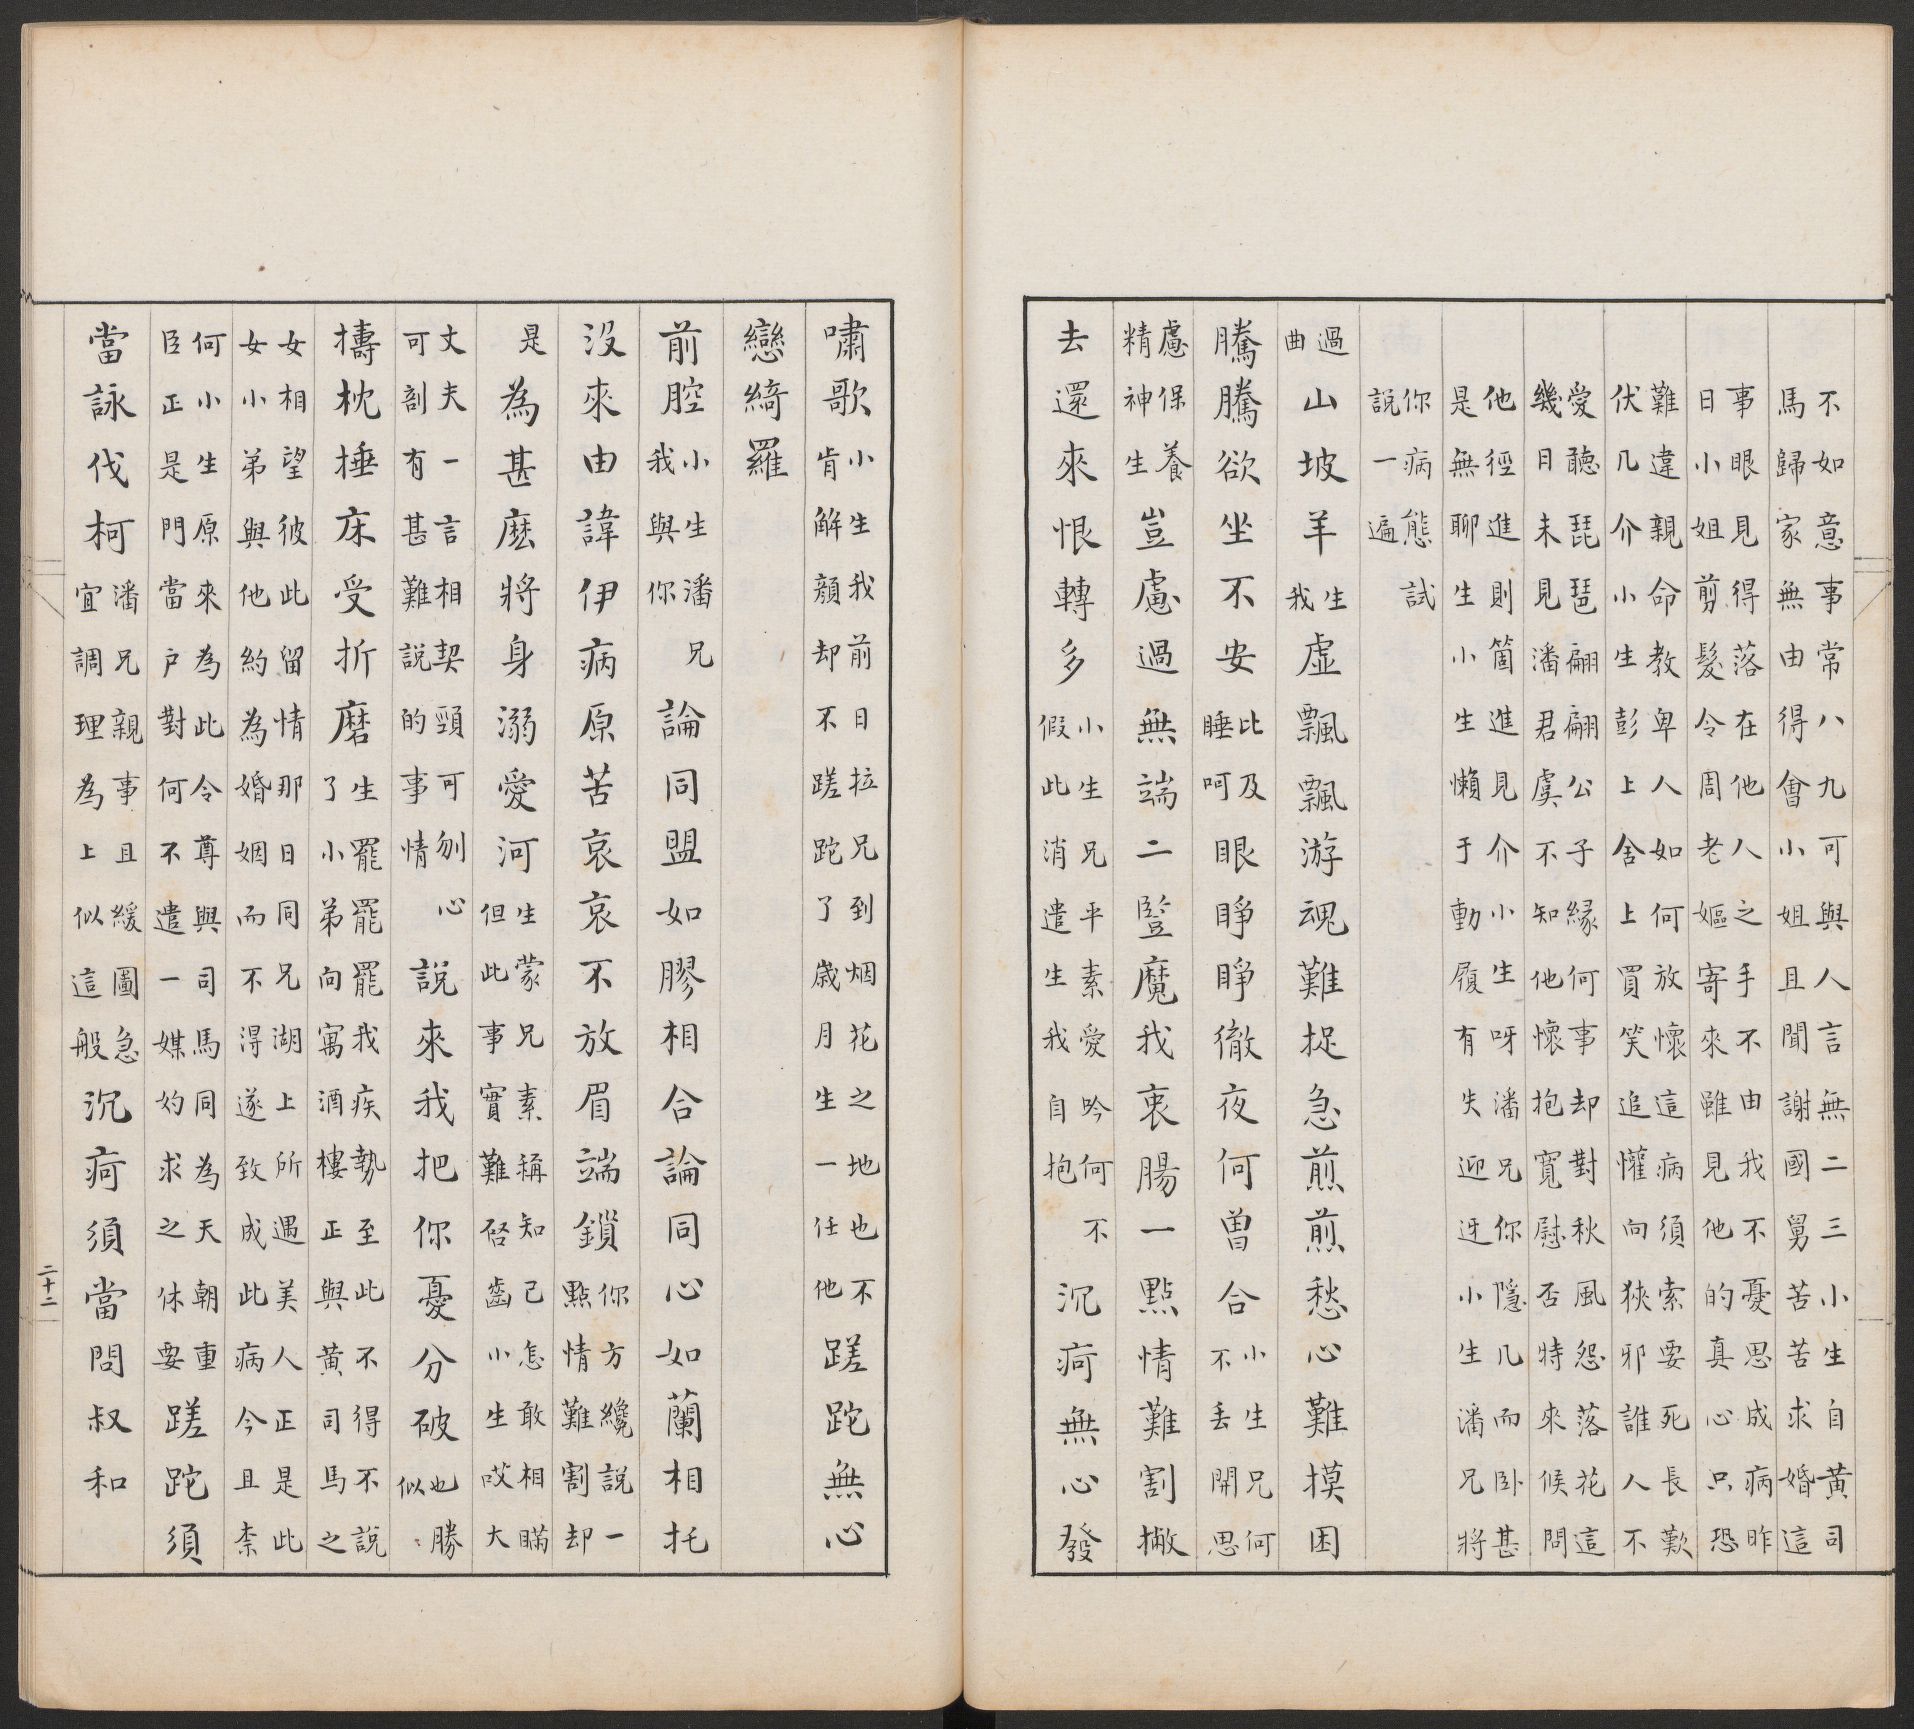 不如意事常八九可與人言無二三小生自黃司
馬歸家無由得會小姐且聞謝國舅苦苦求婚這
事眼見得落在他人之手不由我不憂思成病昨
日小姐剪髮令周老嫗寄來雖見他的真心只恐
難違親命教卑人如何放懷這病須索要死長歎
伏几介小生彭上舍上買笑追懽向狹邪誰人不
愛聽琵琶翩翩公子緣何事却對秋風怨落花這
幾日未見潘君虞不知他懷抱寬慰否特來候問
他徑進則箇進見介小生呀潘兄你隱几而卧甚
是無聊生小生懶于動履有失迎迓小生潘兄將
你病態試
說一遍
過曲山坡羊生我虛飄飄游魂難捉急煎煎愁心難摸困
騰騰欲坐不安比及睡呵眼睜睜徹夜何曾合小生兄何不丟開思
慮保養精神生豈慮過無端二豎魔我衷腸一點情難割撇
去還來恨轉多小生兄平素愛吟何不假此消遣生我自抱沉疴無心發
嘯歌小生我前日拉兄到烟花之地也不肯解顏却不蹉跎了歲月生一任他蹉跎無心
戀綺羅
前腔小生潘兄我與你論同盟如膠相合論同心如蘭相托
沒來由諱伊病原苦哀哀不放眉端鎖你方纔說一點情難割却
是為甚麼將身溺愛河生蒙兄素稱知己怎敢相瞞但此事實難啓齒小生哎大
丈夫一言相契頸可刎心可剖有甚難說的事情說來我把你憂分破也勝似
擣枕捶床受折磨生罷罷罷我疾勢至此不得不說了小弟向寓酒樓正與黃司馬之
女相望彼此留情那日同兄湖上所遇美人正是此女小弟與他約為婚姻而不得遂致成此病今且柰
何小生原來為此令尊與司馬同為天朝重臣正是門當戶對何不遣一媒妁求之休要蹉跎須
當詠伐柯潘兄親事且緩圖急宜調理為上似這般沉疴須當問叔和
二十二